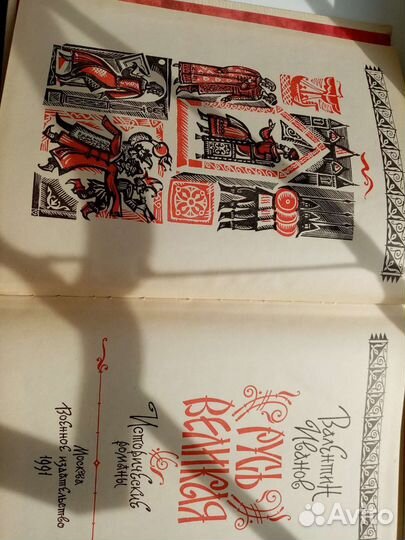 Валентин
Иванов
РУСЬ
ВЕЛИКАЯ
Исторические
романы
Москва
Военное издательство
1991
Avito